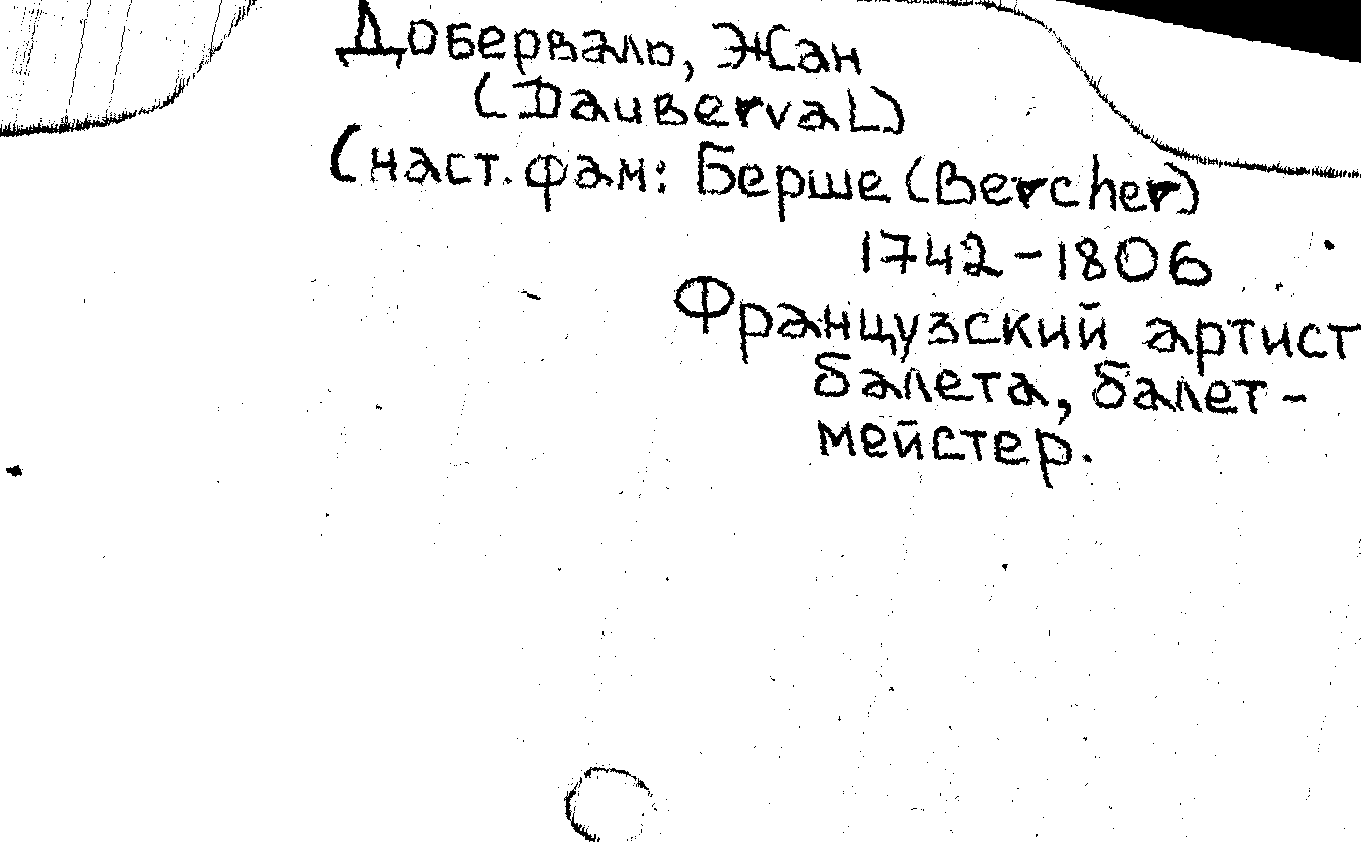 Доберваль, Жан
(Dauberval)
(наст. фам: Берше (Bercher)
1742-1806
Французский артист
балета, балет-
мейстер.